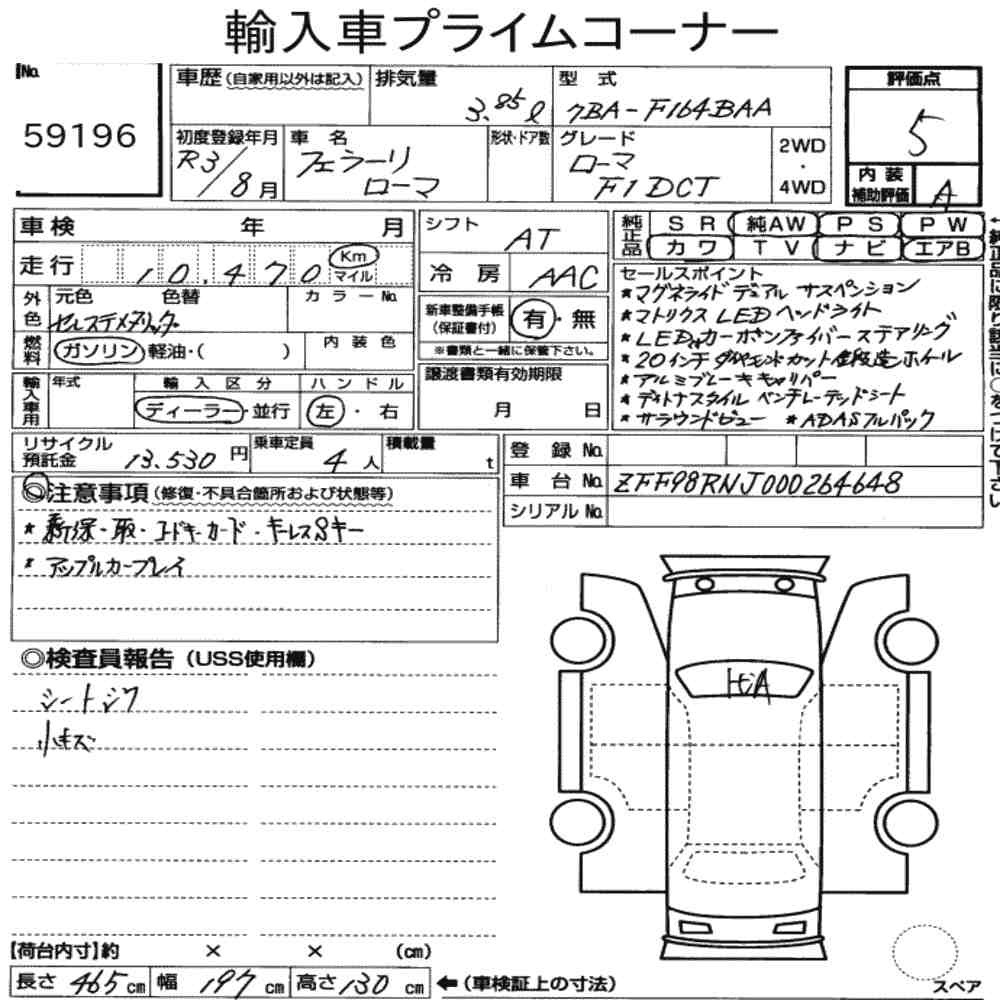 輸入車プライムコーナー
No.
59196
車歴(自家用以外は記入)
排気量
3.85 ℓ
型 式
7BA-F164BAA
評価点
5
初度登録年月
R3/8月
車 名
フェラーリ
ローマ
形状・ドア数
グレード
ローマ
F1 DCT
2WD
・
4WD
内 装
補助評価
A
車検 年 月
走行 10,470 Km
マイル
シフト AT
冷 房 AAC
純正品
SR 純AW PS PW
カワ TV ナビ エアB
外色
元色 色替
セルステメタリック
カラーNo.
燃料
ガソリン・軽油・( )
内 装 色
新車整備手帳
(保証書付)
有・無
※書類と一緒に保管下さい。
セールスポイント
*マグネライド デュアル サスペンション
*マトリクス LED ヘッドライト
*LED付カーボンファイバー ステアリング
*20インチ ダイヤモンドカット鍛造ホイール
*アルミブレーキキャリパー
*ディトナスタイル ベンチレーテッドシート
*サラウンドビュー *ADASフルパック
←純正品に限り該当に○をつけて下さい
輸入車用
年式
輸 入 区 分
ディーラー・並行
ハ ン ド ル
左・右
譲渡書類有効期限
月 日
リサイクル
預託金
13.530 円
乗車定員
4 人
積載量
t
登 録 No.
車 台 No. ZFF98RNJ000264648
シリアル No.
◎注意事項(修復・不具合箇所および状態等)
*新保・取・コードキーカード・キーレスSキー
*アップルカープレイ
◎検査員報告(USS使用欄)
シートシワ
小キズ
【荷台内寸】約 × × (cm)
長さ 465 cm 幅 197 cm 高さ 130 cm ←(車検証上の寸法)
スペア